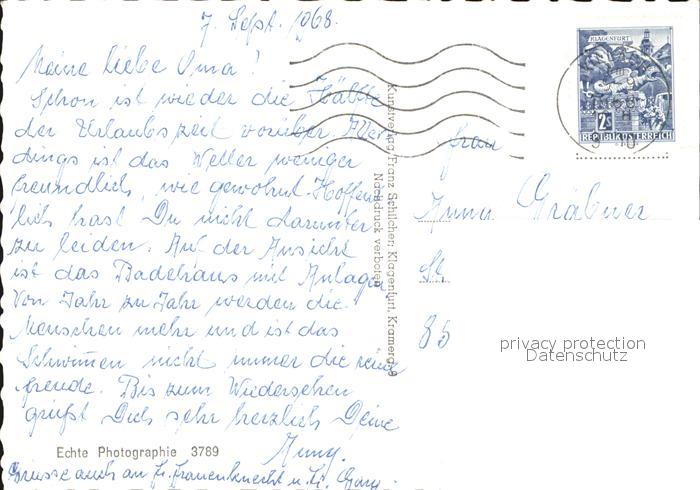 7. Sept. 1968.
Meine liebe Oma!
Schon ist wieder die Hälfte
der Urlaubszeit vorüber. Aller-
dings ist das Wetter weniger
freundlich, wie gewohnt. Hoffent-
lich hast Du nicht darunter
zu leiden. Auf der Ansicht
ist das Badehaus mit Anlage
Von Jahr zu Jahr werden die
Menschen mehr und ist das
Schwimmen nicht immer die reine
Freude. Bis zum Wiedersehen
grüßt Dich sehr herzlich Deine
Grüsse auch an Fr. Frauenknecht u.
Echte Photographie 3789
Kunstverlag Franz Schilcher, Klagenfurt, Kramerg. 9
Nachdruck verboten
KLAGENFURT
2S
REPUBLIK ÖSTERREICH
Frau
Anna Gräbner
85
privacy protection
Datenschutz